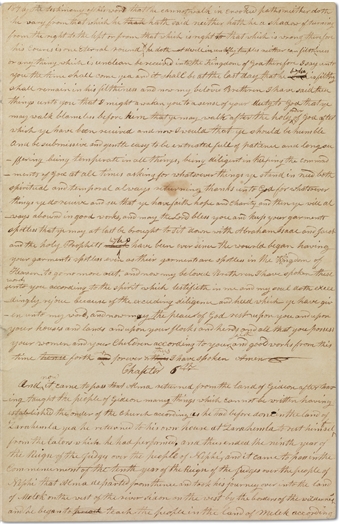 the testimony of his word that he cannot walk in crooked paths neither doth
he vary from that which he hath said neither hath he a shadow of turning
from the right to the left or from that which is right to that which is wrong therefore
his course is one eternal round & he doth not dwell in unholy temples neither can filthiness
or any thing which is unclean be received into the kingdom of God therefore I say unto
you the time shall come yea and it shall be at the last day that he who is filthy
shall remain in his filthiness and now my beloved Brethren I have said these
things unto you that I might awaken you to a sense of your duty to God that ye
may walk blameless before him that ye may walk after the holy order of God after
which ye have been received and now I would that ye should be humble
and be submissive and gentle easy to be entreated full of patience and long su
ffering being temperate in all things being diligent in keeping the comma
ndments of God at all times asking for whatsoever things ye stand in need both
spiritual and temporal always returning thanks unto God for whatsoever
things ye do receive and see that ye have faith hope and charity and then ye will al
ways abound in good works and may the Lord bless you and keep your garments
spotless that ye may at last be brought to sit down with Abraham Isaac and Jacob
and the holy Prophets who have been ever since the world began having
your garments spotless even as their garments are spotless in the Kingdom of
Heaven to go no more out and now my beloved Brethren I have spoken these words
unto you according to the spirit which testifieth in me and my soul doth excee
dingly rejoice because of the exceeding diligence and heed which ye have giv
en unto my word and now may the peace of God rest upon you and upon
your houses and lands and upon your flocks and herds and all that you possess
your women and your children according to your faith and good works from this
time forth and forever and thus I have spoken Amen
Chapter 6th
And now it came to pass that Alma returned from the land of Gideon after hav
ing taught the people of Gideon many things which cannot be written having
established the order of the Church according as he had before done in the land of
Zarahemla yea he returned to his own house at Zarahemla to rest himself
from the labors which he had performed and thus ended the ninth year of
the Reign of the judges over the people of Nephi and it came to pass in the
commencement of the tenth year of the Reign of the judges over the people of
Nephi that Alma departed from thence and took his journey over into the land
of Melek on the west of the river Sidon on the west by the borders of the wilderness
and he began to teach the people in the land of Melek according